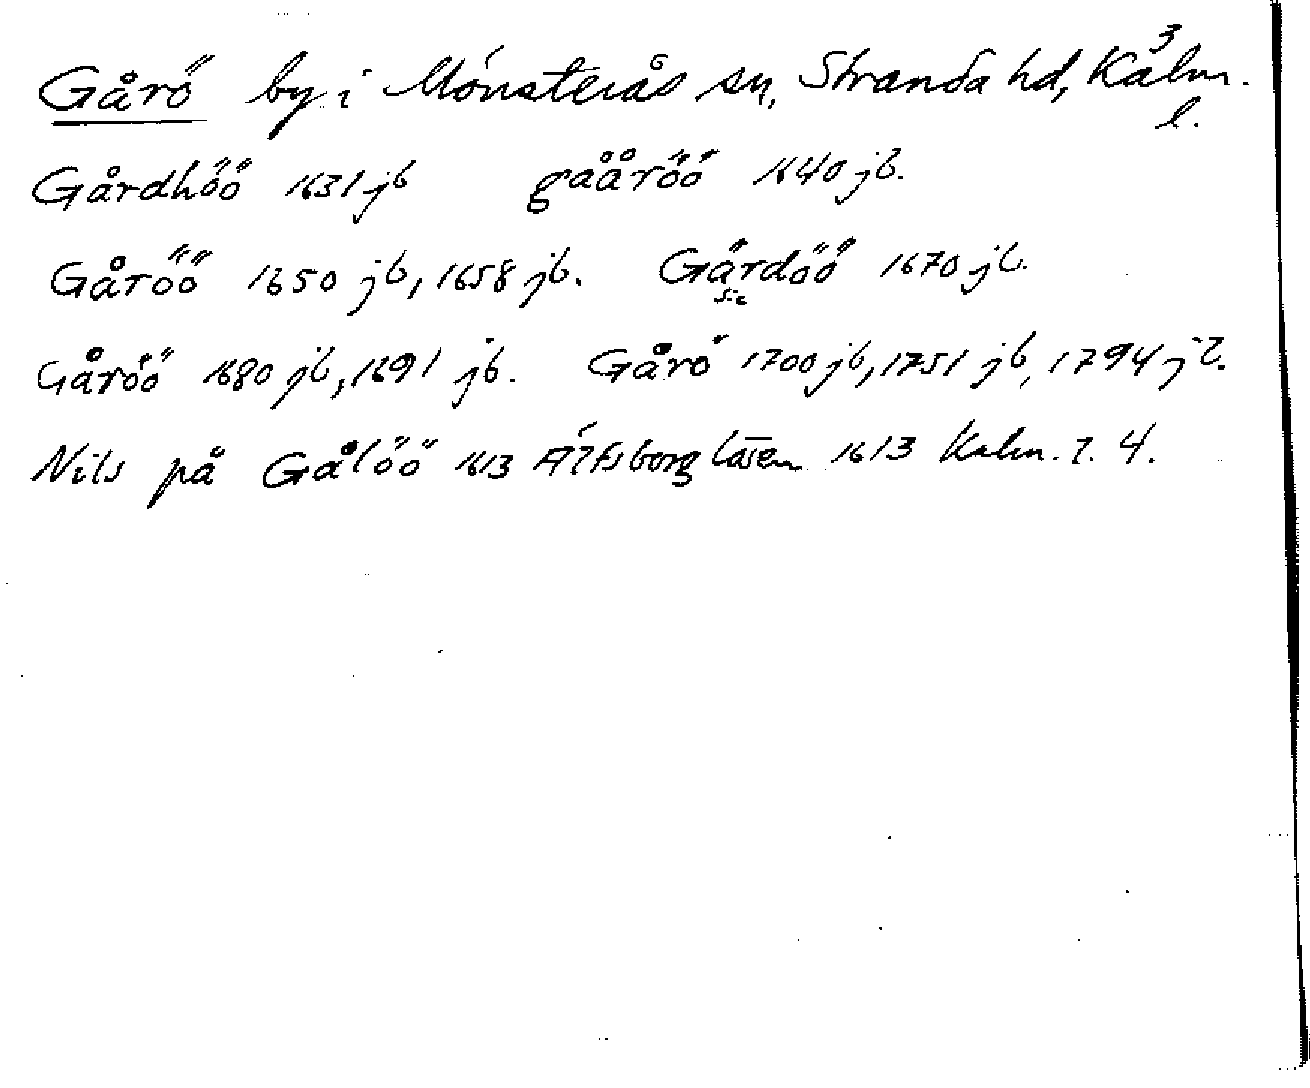 3
Gårö by i Mönsterås sn, Stranda hd, Kalm.
l.
Gårdhöö 1631 jb gaåröö 1640 jb.
Gåröö 1650 jb, 1658 jb. Gärdöö 1670 jb.
sic
Gåröö 1680 jb, 1691 jb. Gårö 1700 jb, 1751 jb, 1794 jb.
Nils på Gålöö 1613 Älfsborg lösen 1613 Kalm. l. 4.